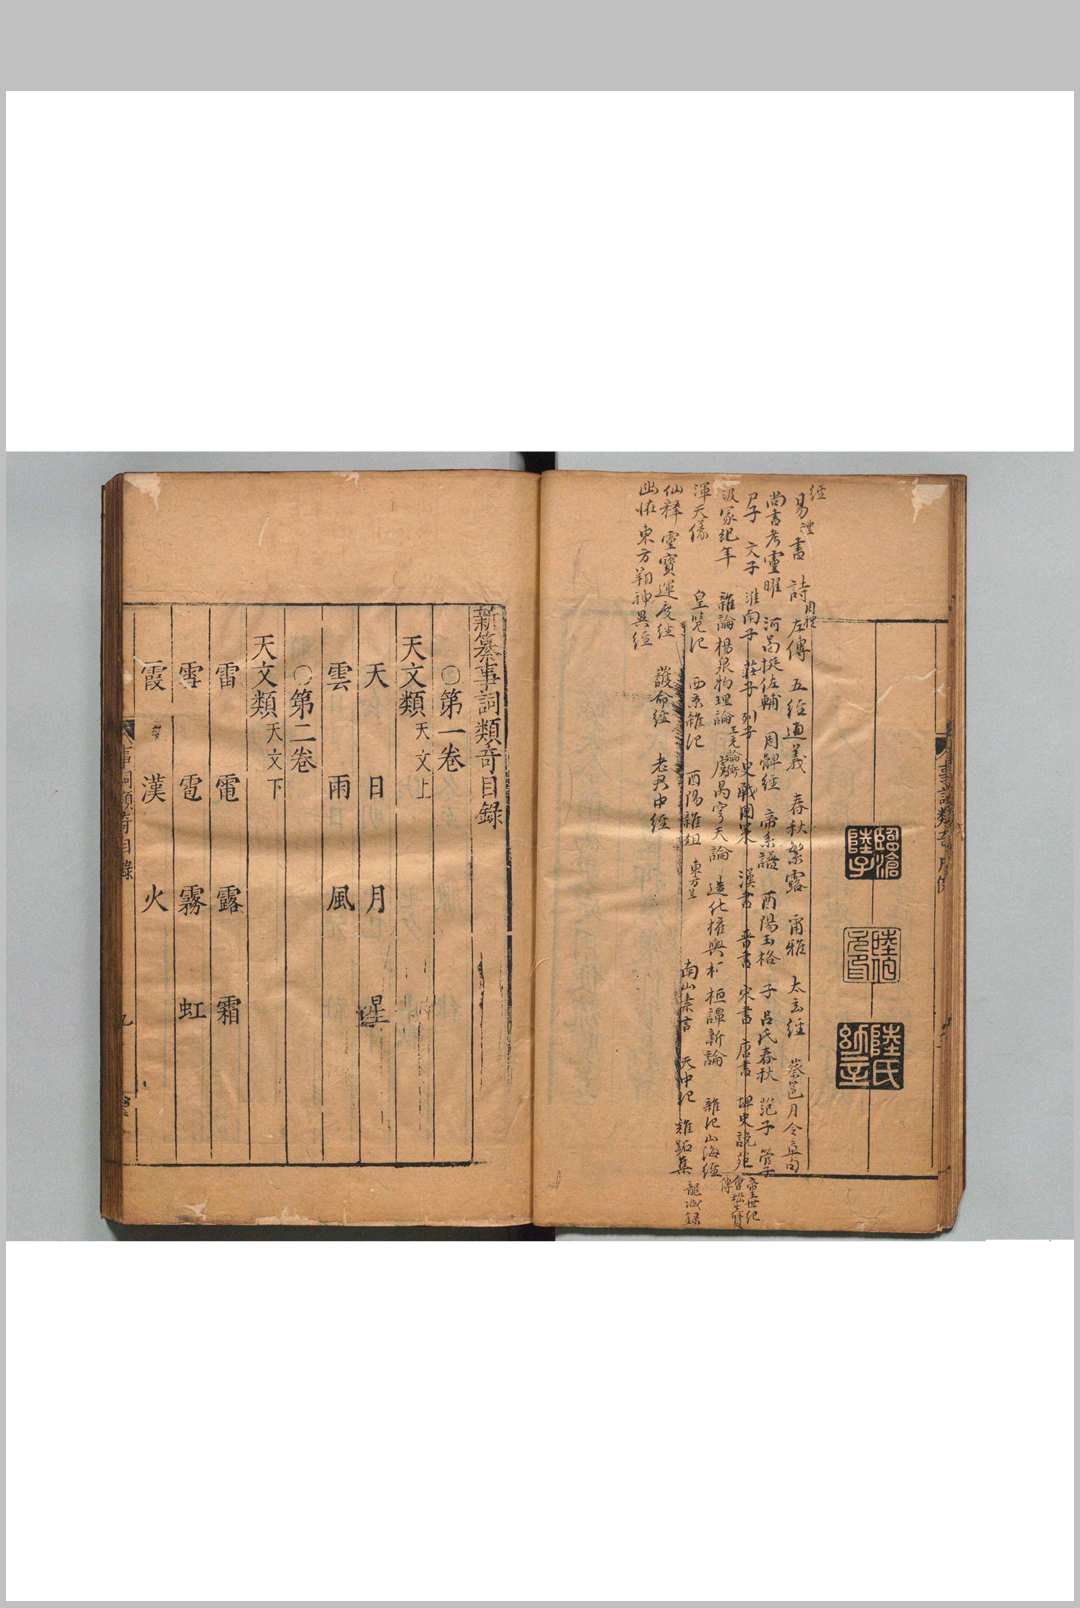 臨滄
陸子
陸氏
經
易 禮 書 詩 周禮 左傳 五經通義 春秋繁露 爾雅 太玄經 蔡邕月令章句
尚書考靈曜 河圖挺佐輔 周髀經 帝系譜 酉陽玉格 子 呂氏春秋 范子 管子
尸子 文子 淮南子 莊子 列子 史 戰國策 漢書 晉書 宋書 唐書 稗史 說苑 帝王世紀
汲冢紀年 雜論 楊泉物理論 王充論衡 虞昺穹天論 造化權輿 桓譚新論 雜記 山海經
渾天儀 皇覽記 西京雜記 酉陽雜俎 東方朔 南山素書 天中記 雜跖集 龍城錄
仙釋 靈寶運度經 護命經 老君中經
幽怪 東方朔神異經
新纂事詞類奇目錄
○第一卷
天文類 天文上
天 日 月 星
雲 雨 風
○第二卷
天文類 天文下
雷 電 露 霜
雪 雹 霧 虹
霞 漢 火
事詞類奇目錄
九